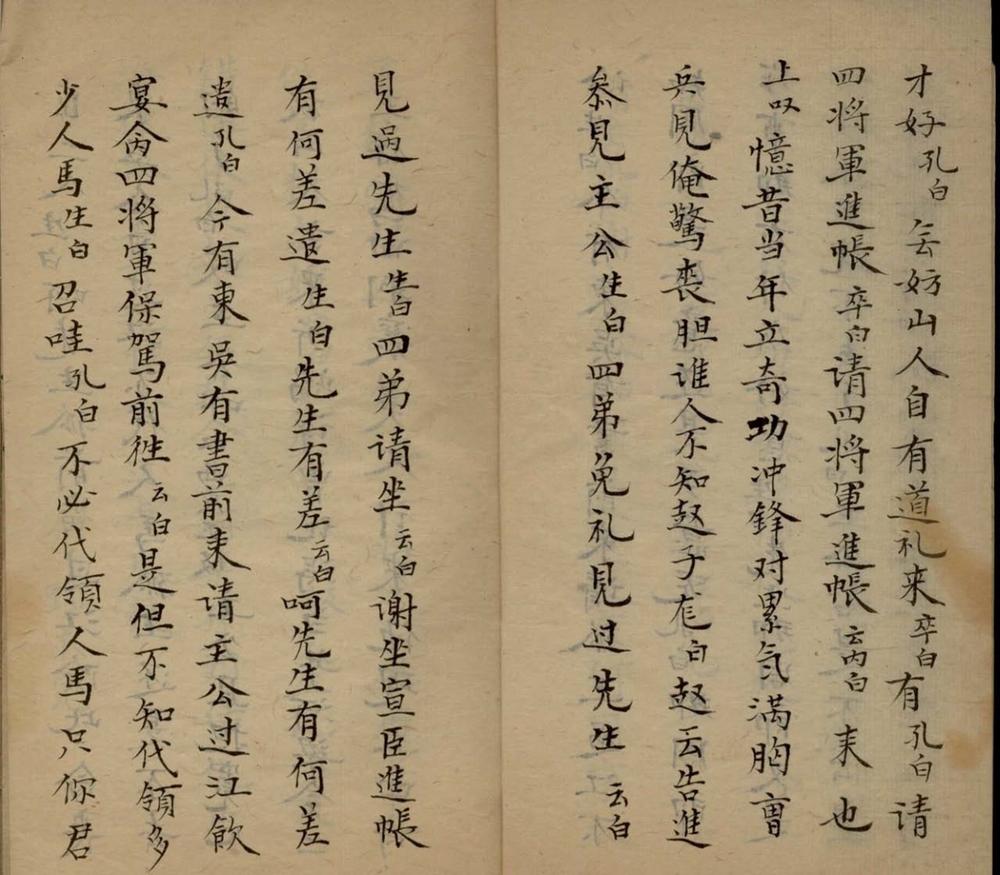 才好孔白无妨山人自有道礼来卒白有孔白请
四将軍進帳卒白请四将軍進帳云内白来也
上叹憶昔当年立奇功冲鋒对累気满胸曹
兵見俺驚丧胆谁人不知赵子尨白赵云告進
叅見主公生白四弟免礼見过先生云白
見過先生生白四弟请坐云白谢坐宣臣進帳
有何差遣生白先生有差云白呵先生有何差
遣孔白今有東吳有書前来请主公过江飲
宴命四将軍保驾前徃云白是但不知代領多
少人馬生白召哇孔白不必代領人馬只你君